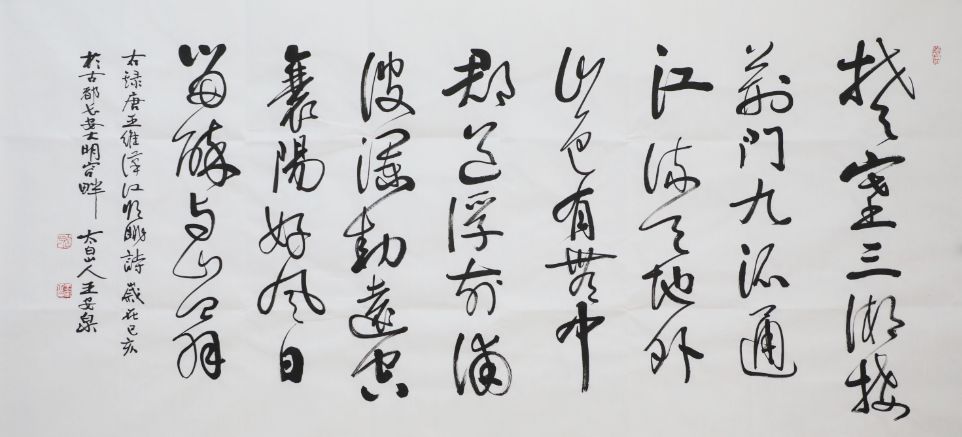 楚塞三湘接
荆門九派通
江流天地外
山色有無中
郡邑浮前浦
波瀾動遠空
襄陽好風日
留醉与山翁
右録唐王維漢江臨眺詩 歲在己亥
於古都长安大明宮畔 太白山人王安泉